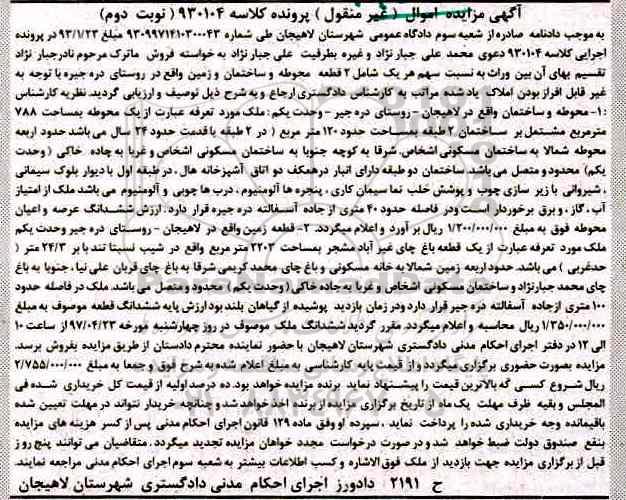 آگهی مزایده اموال ( غیر منقول ) پرونده کلاسه ۹۳۰۱۰۴ ( نوبت دوم)
به موجب دادنامه صادره از شعبه سوم دادگاه عمومی شهرستان لاهیجان طی شماره ۹۳۰۹۹۷۱۴۱۰۳۰۰۰۴۳ مبلغ ۹۳/۱/۲۳ در پرونده
اجرایی کلاسه ۹۳۰۱۰۴ دعوی محمد علی جبارنژاد و غیره بطرفیت علی جبارنژاد به خواسته فروش ماترک مرحوم نادر جبار نژاد
تقسیم بهای آن بین وراث به نسبت سهم هر یک شامل ۲ قطعه محوطه و ساختمان و زمین واقع در روستای دره جیر با توجه به
غیر قابل افراز بودن املاک یاد شده مراتب به کارشناس دادگستری ارجاع و به شرح ذیل توصیف و ارزیابی گردید. نظریه کارشناس
: ۱- محوطه و ساختمان واقع در لاهیجان - روستای دره جیر - وحدت یکم : ملک مورد تعرفه عبارت از یک محوطه بمساحت ۷۸۸
مترمربع مشتمل بر ساختمان ۲ طبقه بمساحت حدود ۱۲۰ متر مربع ( در ۲ طبقه با قدمت حدود ۲۴ سال می باشد حدود اربعه
محوطه شمالا به ساختمان مسکونی اشخاص. شرقا به کوچه جنوبا به ساختمان مسکونی اشخاص و غربا به جاده خاکی ( وحدت
یکم) محدود و متصل می باشد. ساختمان دو طبقه دارای انبار در همکف دو اتاق آشپزخانه هال ، در طبقه اول با دیوار بلوک سیمانی
، شیروانی با زیر سازی چوب و پوشش حلب نما سیمان کاری ، پنجره ها آلومنیوم ، درب ها چوبی و آلومنیوم می باشد ملک از امتیاز
آب ، گاز ، و برق برخوردار است ودر فاصله حدود ۴۰ متری از جاده آسفالته دره جیره قرار دارد . ارزش ششدانگ عرصه و اعیان
محوطه فوق به مبلغ ۱/۲۰۰/۰۰۰/۰۰۰ ریال بر آورد و اعلام میگردد. ۲- قطعه زمین واقع در لاهیجان - روستای دره جیر وحدت یکم
ملک مورد تعرفه عبارت از یک قطعه باغ چای غیر آباد مشجر بمساحت ۲۲۰۲ متر مربع واقع در شیب نسبتا تند با بر ۲۴/۳ متر (
حد غربی ) می باشد. حدود اربعه زمین شمالا به خانه مسکونی و باغ چای محمد کریمی شرقا به باغ چای قربان علی نیا ، جنوبا به باغ
چای محمد جبارنژاد و ساختمان مسکونی اشخاص و غربا به جاده خاکی ( وحدت یکم) محدود و متصل می باشد. ملک در فاصله حدود
۱۰۰ متری از جاده آسفالته دره جیر قرار دارد ودر زمان بازدید پوشیده از گیاهان بلند بود ارزش پایه ششدانگ قطعه موصوف به مبلغ
۱/۳۵۰/۰۰۰/۰۰۰ ریال محاسبه و اعلام میگردد. مقرر گردید ششدانگ ملک موصوف در روز چهارشنبه مورخه ۹۷/۰۴/۲۳ از ساعت ۱۰
الی ۱۲ در دفتر اجرای احکام مدنی دادگستری شهرستان لاهیجان با حضور نماینده محترم دادستان از طریق مزایده بفروش برسد.
مزایده بصورت حضوری برگزاری میگردد و از قیمت پایه کارشناسی به مبلغ اعلام شده به شرح فوق و جمعا به مبلغ ۲/۷۵۵/۰۰۰/۰۰۰
ریال شروع کسی که بالاترین قیمت را پیشنهاد نماید برنده مزایده خواهد بود. ده درصد اولیه از قیمت کل خریداری شده فی
المجلس و بقیه ظرف مهلت یک ماه از تاریخ برگزاری مزایده از برنده اخذ خواهد شد و چنانچه خریدار نتواند در مهلت تعیین شده
باقیمانده وجه خریداری شده را پرداخت نماید ، سپرده او وفق ماده ۱۲۹ قانون اجرای احکام مدنی پس از کسر هزینه های مزایده
بنفع صندوق دولت ضبط خواهد شد و در صورت درخواست مجدد خواهان مزایده تجدید میگردد . متقاضیان می توانند پنج روز
قبل از برگزاری مزایده جهت بازدید از ملک فوق الاشاره و کسب اطلاعات بیشتر به شعبه سوم اجرای احکام مدنی مراجعه نمایند.
ح ۲۱۹۱ دادورز اجرای احکام مدنی دادگستری شهرستان لاهیجان